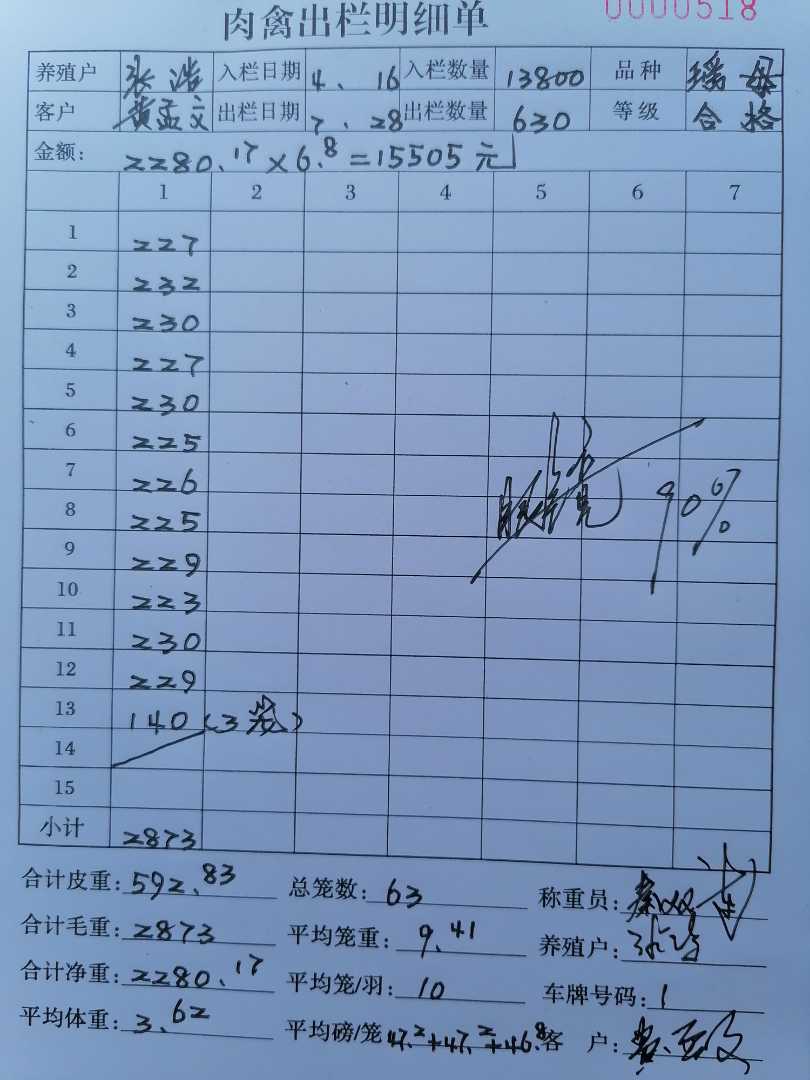 肉禽出栏明细单 0000518
养殖户 张浩 入栏日期 4、16 入栏数量 13800 品种 瑶母
客户 黄孟文 出栏日期 7.28 出栏数量 630 等级 合格
金额: 2280.17×6.8=15505元
1 2 3 4 5 6 7
1 227
2 232
3 230
4 227
5 230
6 225
7 226
8 225
9 229
10 223
11 230
12 229
13 140(3笼)
14
15
小计 2873
90%
合计皮重: 592.83 总笼数: 63 称重员:
合计毛重: 2873 平均笼重: 9.41 养殖户: 张浩
合计净重: 2280.17 平均笼/羽: 10 车牌号码: 1
平均体重: 3.62 平均磅/笼 47.2+47.2+46.8 客 户: 黄孟文